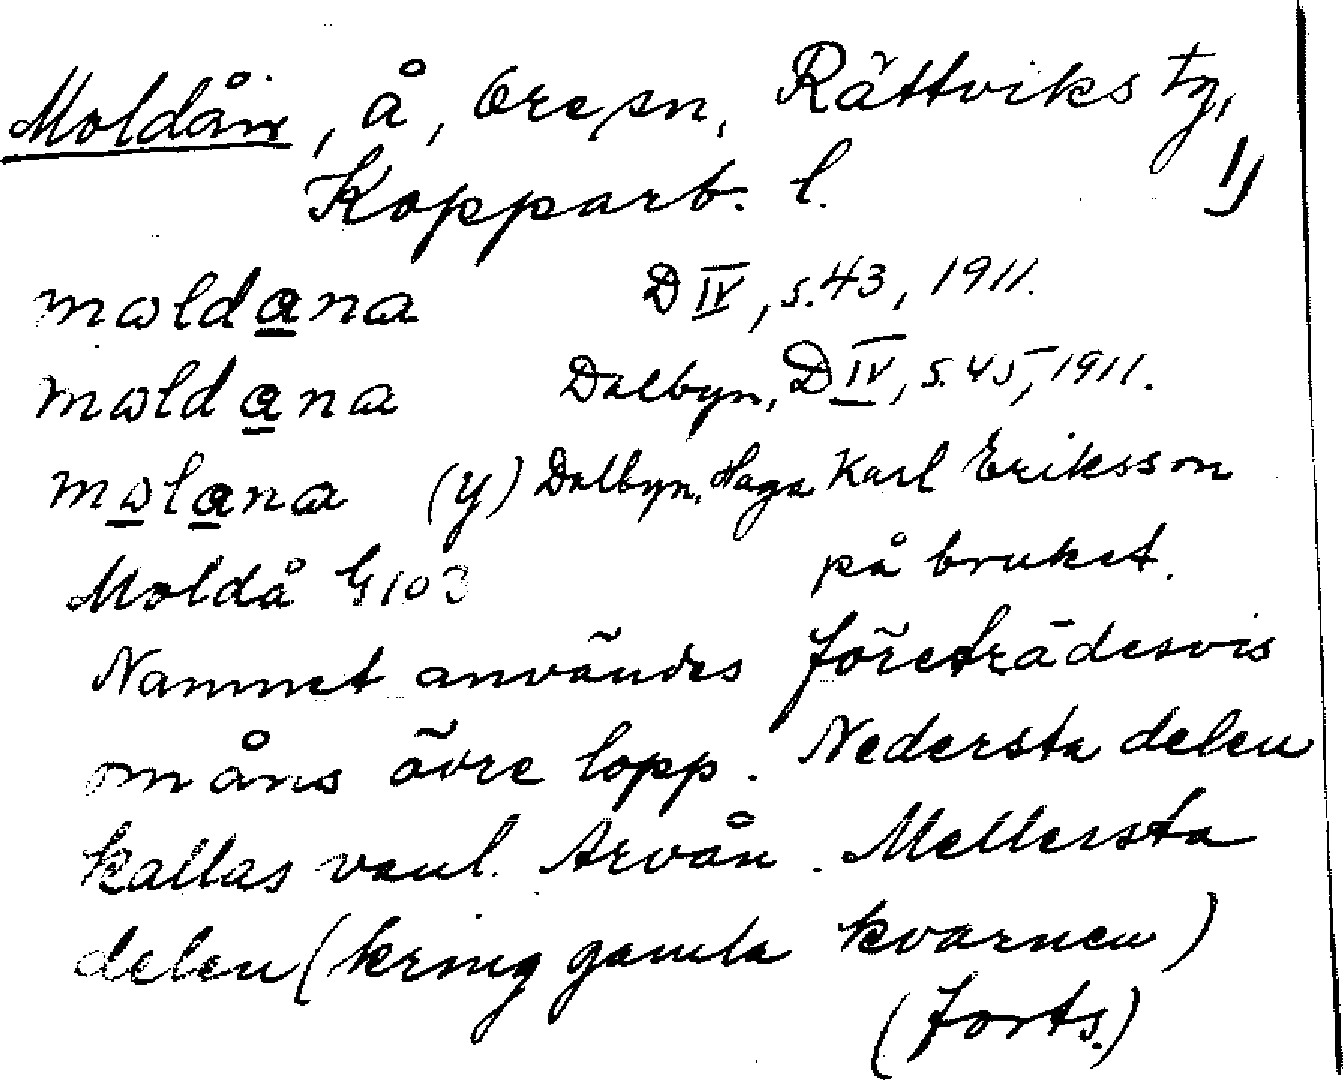 Moldån, å, Ore sn, Rättviks tg,
Kopparb. l. 1)
mɷldana D IV, s. 43, 1911.
mɷldana Dalbyn, D IV, s. 45, 1911.
mɷlana (y) Dalbyn, Haga Karl Eriksson
Moldå G103 på bruket.
Namnet användes företrädesvis
om åns övre lopp. Nedersta delen
kallas vanl. Arvån. Mellersta
delen (kring gamla kvarnen)
(forts.)